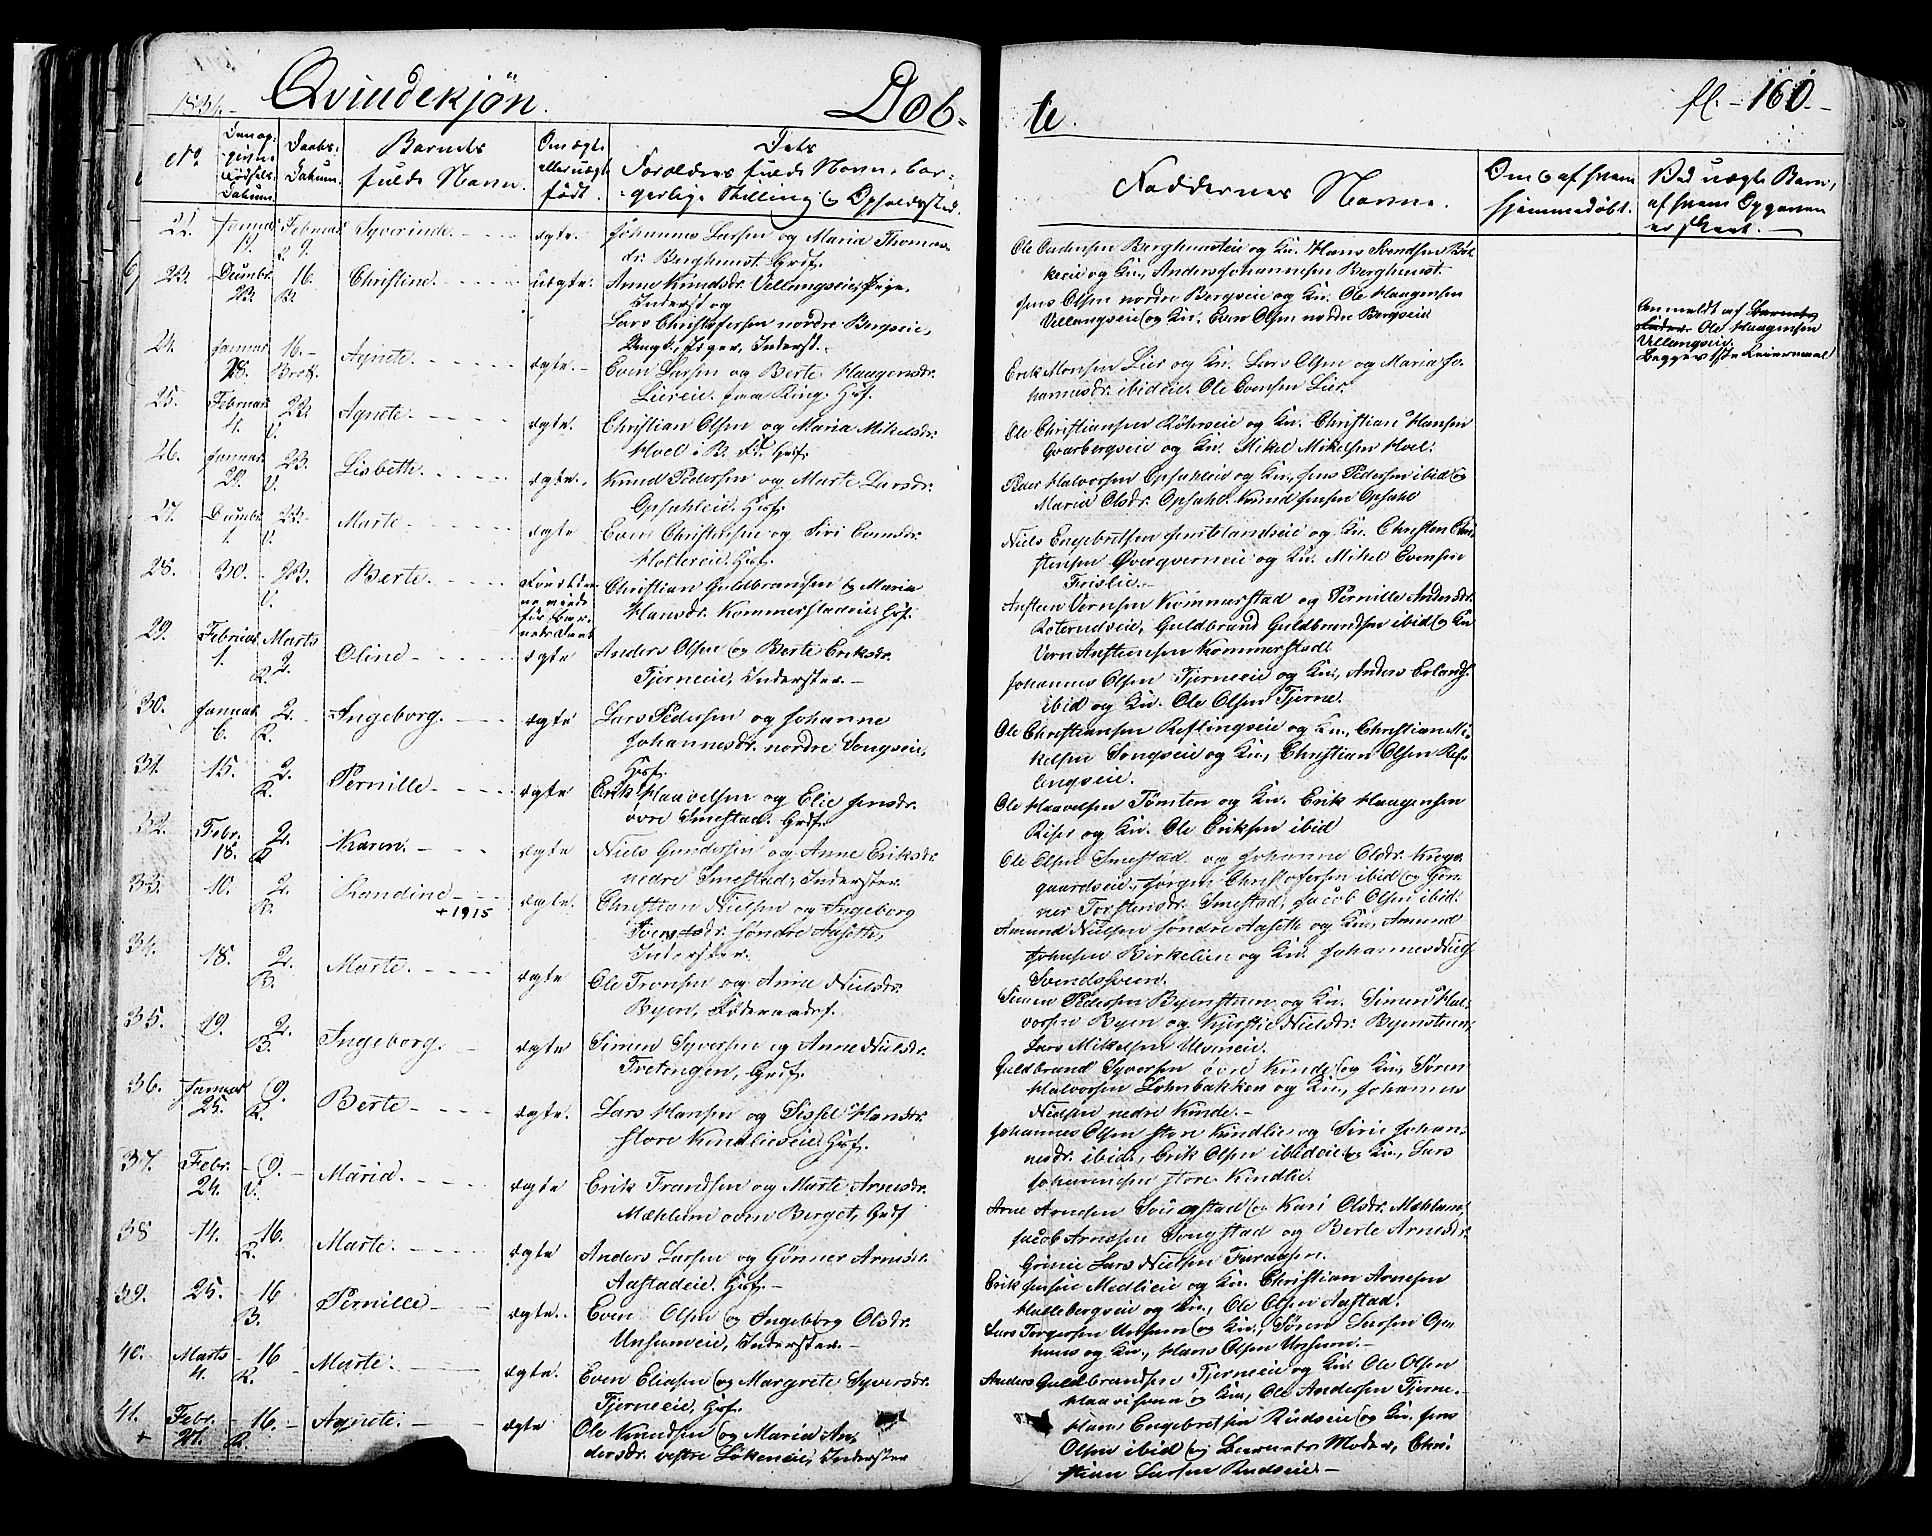 Qvindekjön. Döb-
te. fl. 160.
No.
Den op-
givne
Födsels-
Datum.
Daabs-
Datum.
Barnets
fulde Navn.
Om ægte
eller uægte
födt.
Dets
Forældres fulde Navne, bor-
gerlige Stilling og Opholdssted.
Faddernes Navne.
Om & af hvem
hjemmedöbt.
Ved uægte Barn,
af hvem Opgaven
er skeet.
22. Januar Februar 9. Syverinde. ægte. Johannes Larsen og Maria Thomas-
dr. Berghuust. Grdf.
Ole Berghuuseie og Kn. Hans Svendsen
og Kn., Anders Johannesen Berghuust.
23. Decembr. 16. Christine. uægte. Anne Knudsdr. Vellangseie, Pige,
Inderst og
Lars Christofersen nordre Bergseie,
Ungk., Inderst.
Jens Olsen nordre Bergseie og Kn. Ole Haagensen
Vellangseie og Kn. Even Olsen nordre Bergseie
Anmeldt af
Ole Haagensen
Vellangseie.
Begges 1ste Leiermaal
24. Januar 28. 16. Brøt. Agnete. ægte. Even Larsen og Berte Haagensdr.
Liereie. paa Ring. Hf.
Erik Monsen Lier og Kn. Lars Olsen og Maria Jo-
hannesdr. ibideie. Ole Evensen Lier.
25. Februar 4. 23. V. Agnete. ægte. Christian Olsen og Maria Mikelsdr.
Hoel i B. Fd. Grdf.
Ole Christiansen og Kn. Christian Hansen
og Kn. Mikel Mikelsen Hoel.
26. Januar 29. 23. V. Lisbette. ægte. Knud Pedersen og Marte Larsdr.
Opsahleie. Hsf.
Peder Halvorsen Opsahleie og Kn., Jens Pedersen ibid og
Maria Olsdr. Opsahl. Knud Jensen Opsahl
27. Decembr. 1. 23. V. Marte. ægte Even Christensen og Siri Evensdr.
Holtereie. Hsf.
Niels Engebretsen og Kn. Christen Chri-
stensen og Kn. Mikel Evensen
Frislie.
28. 30. 23. V. Berte. Forældre-
ne viede
för Bar-
nets Daab
Christian Guldbransen og Maria
Hansdr. Kommerstadeie, Hsf.
Ansteen Versen Kommerstad og Pernille Andersdr.
Roterudseie, Guldbrand Guldbrandsen ibid og Kn
Vern Ansteensen Kommerstad.
29. Februar 1. Marts 2. R. Oline ægte Anders Olsen og Berte Eriksdr.
Tjerneeie, Inderster.
Johannes Olsen Tjerneeie og Kn., Anders Erlands.
ibid og Kn. Ole Olsen Tjerne.
30. Januar 6. 2. R. Ingeborg. ægte Lars Pedersen og Johanne
Johannesdr. nordre Songseie,
Hsf.
Ole Christiansen Reflingseie og Kn., Christian Mi-
kelsen Songseie og Kn., Christian Olsen Ref-
lingseie.
31. 15. 2. R. Pernille ægte Erik Haavelsen og Elie Jensdr.
övre Smestad. Grdf.
Ole Haavelsen Tömten og Kn. Erik Haagensen
Riser og Kn. Ole Eriksen ibid
32. Febr. 18. 2. R Karen. ægte Niels Gundersen og Anne Eriksdr.
nedre Smestad, Inderster.
Ole Olsen Smestad og Johanne Olsdr. Kirge-
gaardseie, Jörgen Christofersen ibid og Gön-
ner Torstensdr. Smestad, Jacob Olsen ibid.
33. 10. 2. R. Randine +1915 ægte. Christian Nielsen og Ingeborg
Iversdr. söndre Aasette,
Inderster.
Amund Nielsen söndre Aasette og Kn., Amund
Johnsen Birkelien og Kn. Johannes Niels
Svendssveen.
34. 18. 2. B. Marte. ægte Ole Tronsen og Anne Nielsdr.
Byen,
Simen Pedersen Byensteen og Kn. Simen Hal-
vorsen Byen og Kjerstie Nielsdr. Byensteen,
Lars Mikelsen Ulvneie.
35. 19. 2. B. Ingeborg. ægte Simen Syversen og Anne Nielsdr.
Tretengen, Grdf.
Guldbrand Syversen övre Kinde og Kn., Sören
Halvorsen Lohnbakken og Kn., Johannes
Nielsen nedre Kinde.
36. Januar 25. 9. R. Berte ægte. Lars Hansen og Sissel Hansdr.
store Kindlieeie. Hsf.
Johannes Olsen store Kindlie og Sirie Johan-
nesdr. ibid., Erik Olsen ibideie og Kn., Lars
Johannesen store Kindlie.
37. Febr. 24. 9. V. Maria. ægte Erik Trandsen og Marte Arnesdr.
Mæhlum oven Berget, Grdf
Arne Arnesen Sougstad og Kari Olsdr. Mæhlum,
Jacob Arnesen Songstad og Berte Arnesdr.
Grinie Lars Nielsen Furaasen.
38 14. 16. R. Marte. ægte Anders Larsen og Gönner Arnesdr.
Aastadeie. Hsf.
Erik Jensen Medlieeie og Kn. Christian Arnesen
Hallebergseie og Kn., Ole Olsen Aastad.
39. 25. 16 B. Pernille ægte. Even Olsen og Ingeborg Olsdr.
Unsumeie, Inderster.
Lars Torgersen Unsum og Kn., Sören Larsen Op-
huus og Kn., Hans Olsen Unsum.
40. Marts 4. 16 R. Marte. ægte. Even Eliasen og Margrete Syversdr.
Tjerneeie, Hsf.
Anders Guldbrandsen Tjerneeie og Kn. Ole Olsen
og Kn., Ole Andersen Tjerne.
41. + Febr. 27. 16. R. Agnete. ægte Ole Knudsen og Maria An-
dersdr. vestre Lökeneie, Inderster
Hans Engebretsen Rudseie og Kn. Jens
Olsen ibid og Barnets Moder, Chri-
stian Larsen Rudseie